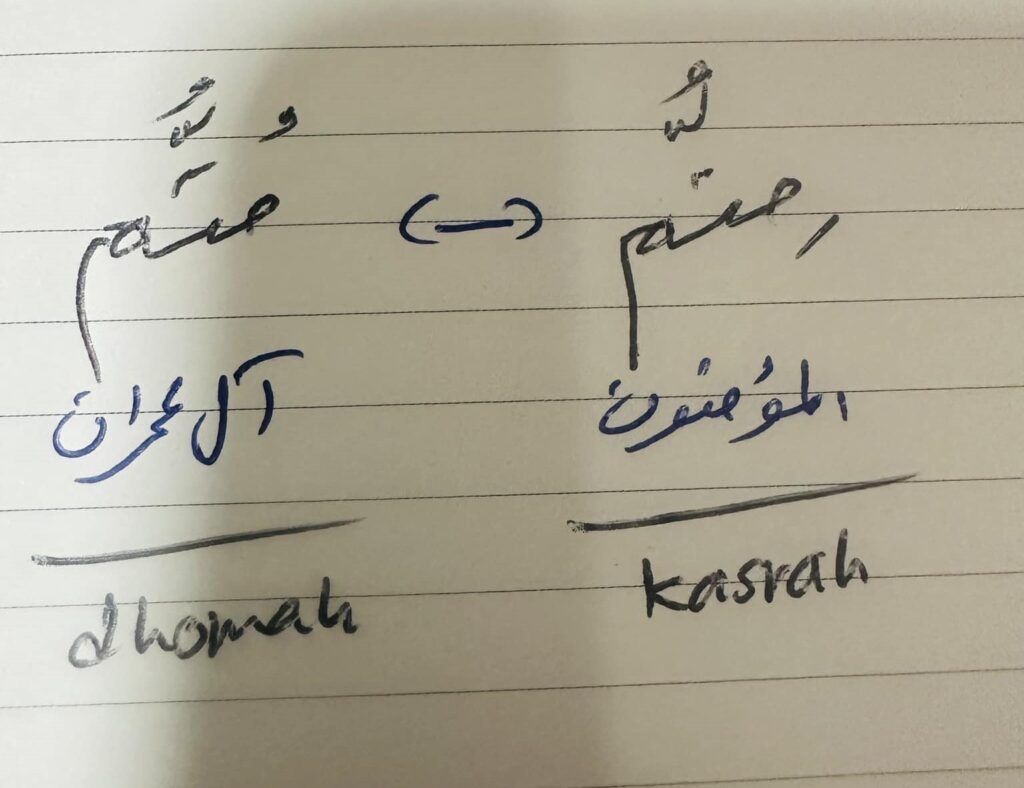 مِتُّم (—) مُتُّم
المؤمنون آل عمران
dhomah kasrah